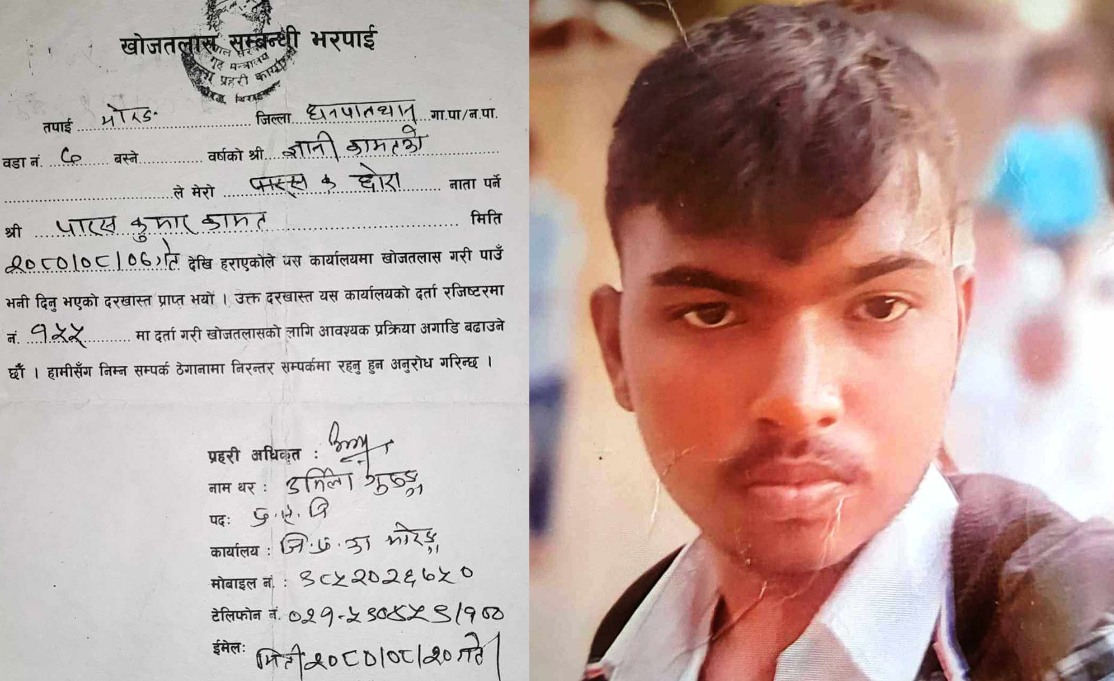 खोजतलास सम्बन्धी भरपाई
तपाई मोरङ जिल्ला धनपालथान गा.पा/न.पा.
वडा नं. ७ बस्ने वर्षको श्री ज्ञानी कामतको
ले मेरो छोरा नाता पर्ने
श्री पारस कुमार कामत मिति
२०८०/०८/०६ गते देखि हराएकोले यस कार्यालयमा खोजतलास गरी पाउँ
भनी दिनु भएको दरखास्त प्राप्त भयो । उक्त दरखास्त यस कार्यालयको दर्ता रजिष्टरमा
नं. १५५ मा दर्ता गरी खोजतलासको लागि आवश्यक प्रक्रिया अगाडि बढाउने
छौं । हामीसँग निम्न सम्पर्क ठेगानामा निरन्तर सम्पर्कमा रहनु हुन अनुरोध गरिन्छ ।
प्रहरी अधिकृत :
नाम थर : उर्मिला गुरुङ्ग
पद:
कार्यालय : जि.प्र.का मोरङ्ग
मोबाइल नं. : ९८५२०२६७५०
टेलिफोन नं. ०२१-
ईमेल:
मिति २०८०/०८/२० गते